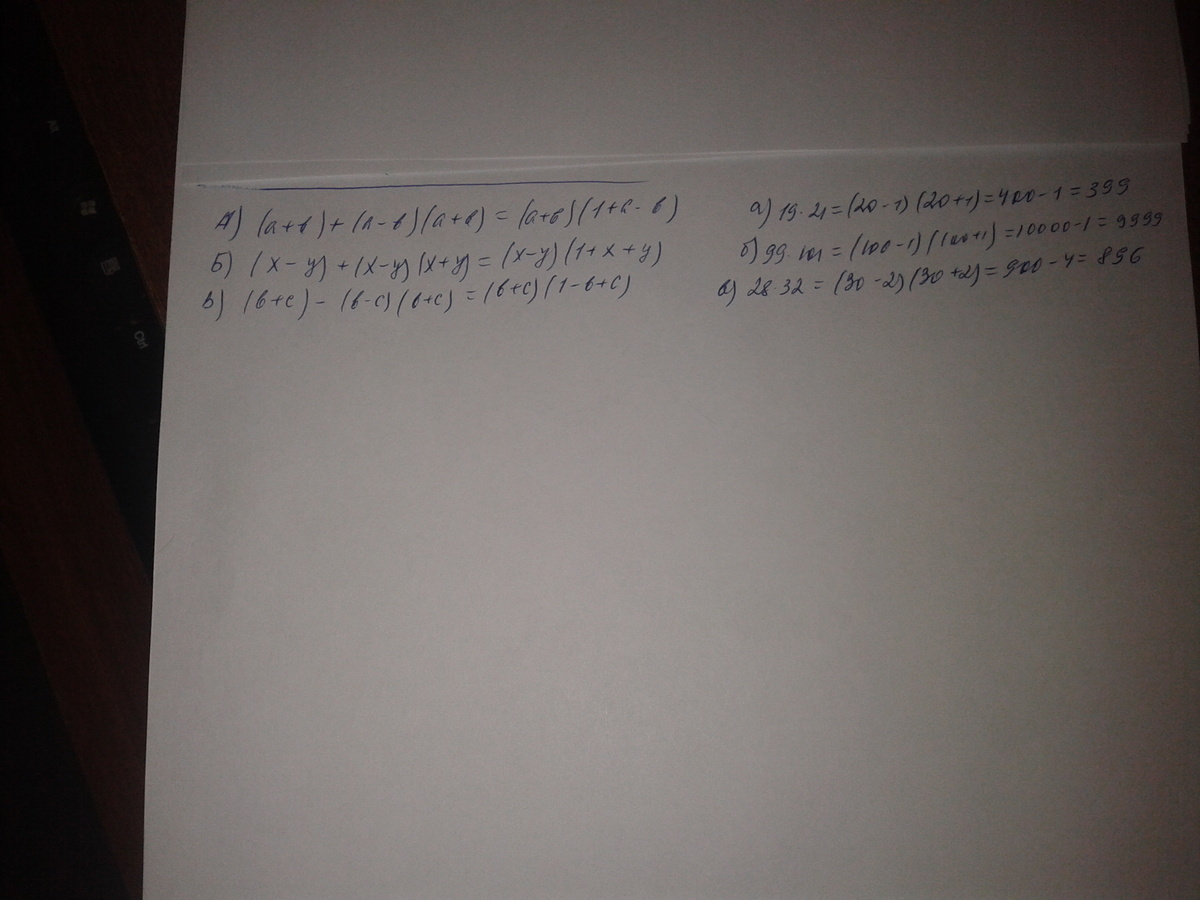 А) (a+b)+(a-b)(a+b) = (a+b)(1+a-b)
Б) (x-y)+(x-y)(x+y) = (x-y)(1+x+y)
в) (b+c) - (b-c)(b+c) = (b+c)(1-b+c)
а) 19·21=(20-1)(20+1)=400-1=399
б) 99·101=(100-1)(100+1)=10000-1=9999
в) 28·32=(30-2)(30+2)=900-4=896
Alt
Ctrl